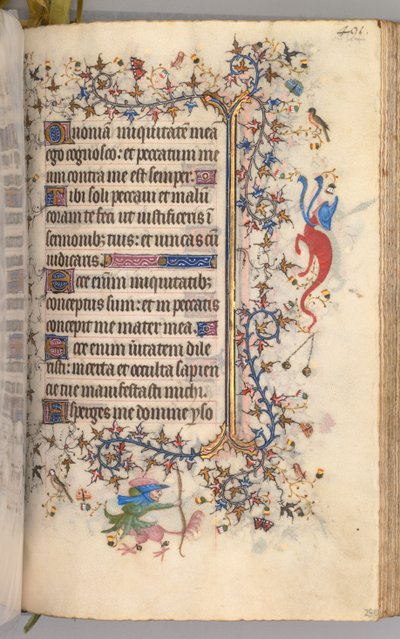 Quoniā iniquitatē mea
ego cognosco: et peccatum me
um contra me est semper.
Tibi soli peccaui et malū
coram te feci ut iustificeris ī
sermonibꝫ tuis: et uincas cū
iudicaris.
Ecce enim iniquitatibꝫ
conceptus sum: et in peccatis
concepit me mater mea.
Ecce enim ūitatem dile
xisti: incerta et occulta sapien
cie tue manifestasti michi.
Asperges me domine yso